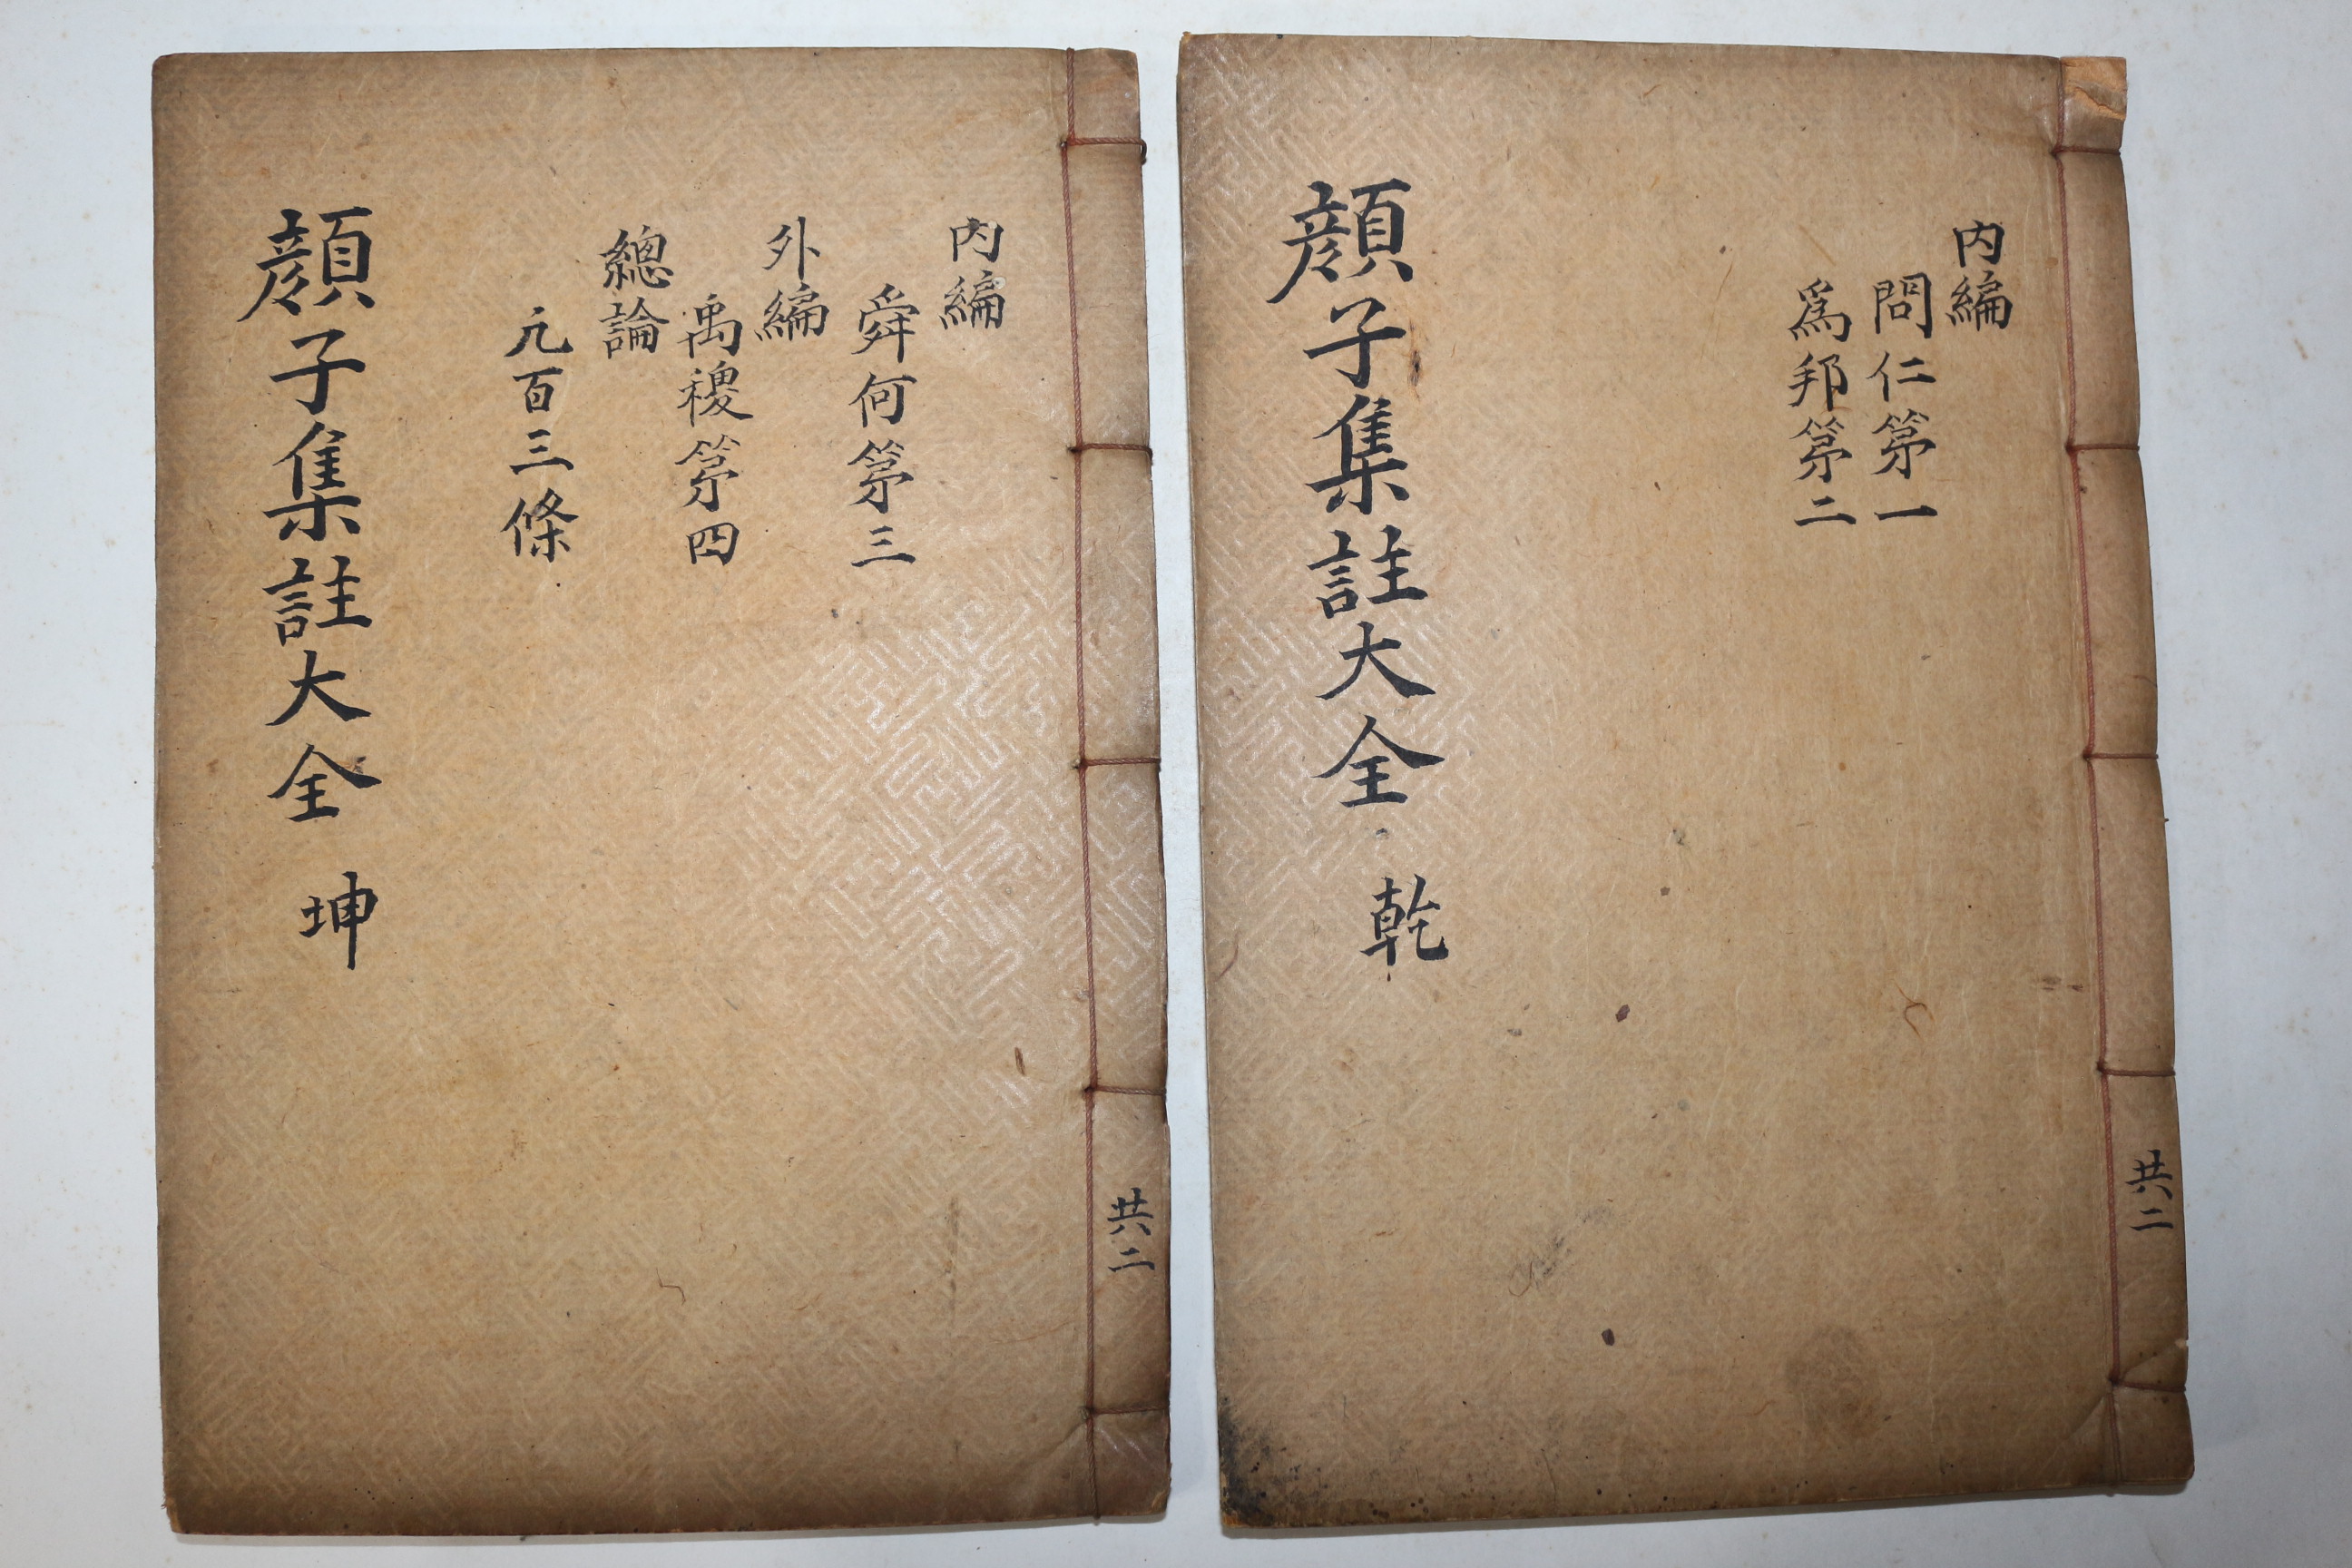 內編
問仁第一
爲邦第二
顔子集註大全 乾
共二
內編
舜何第三
外編
禹稷第四
總論
凢百三條
顔子集註大全 坤
共二